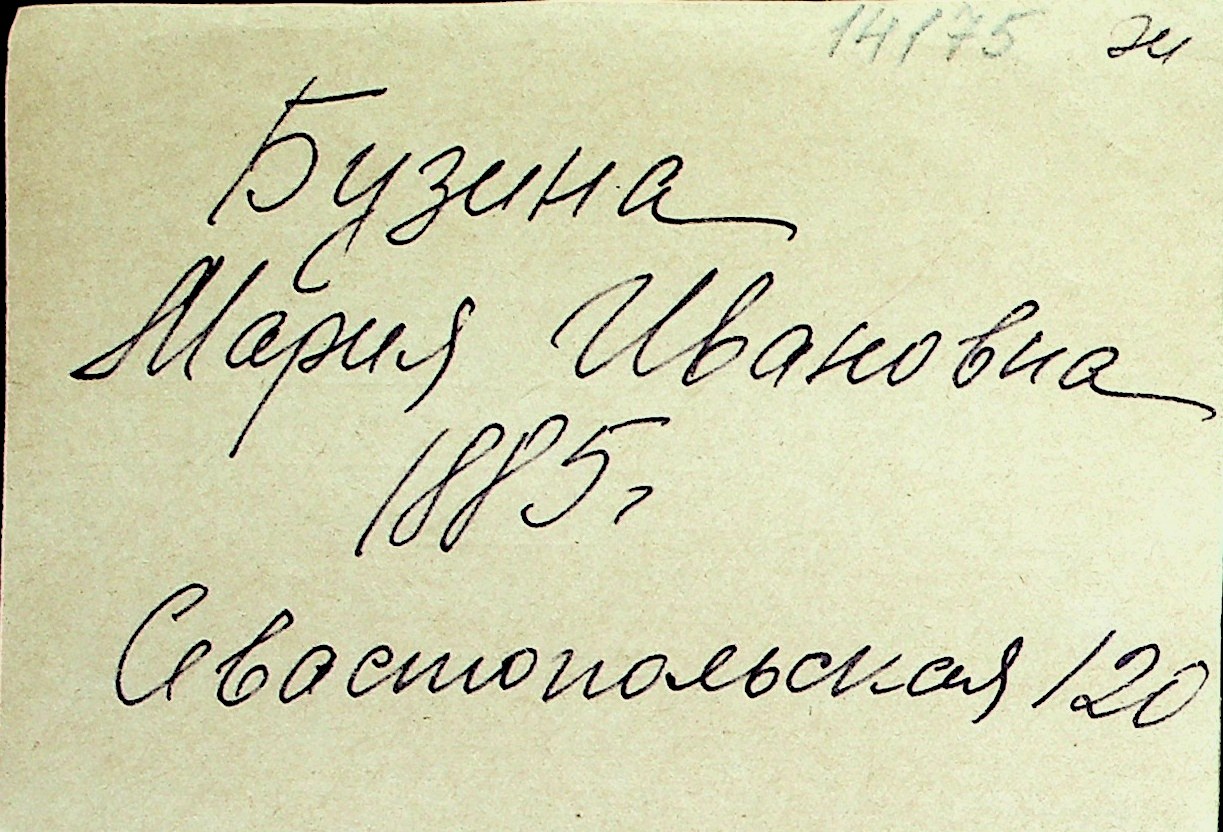 14175 ж
Бузина
Мария Ивановна
1885г
Севастопольская 120